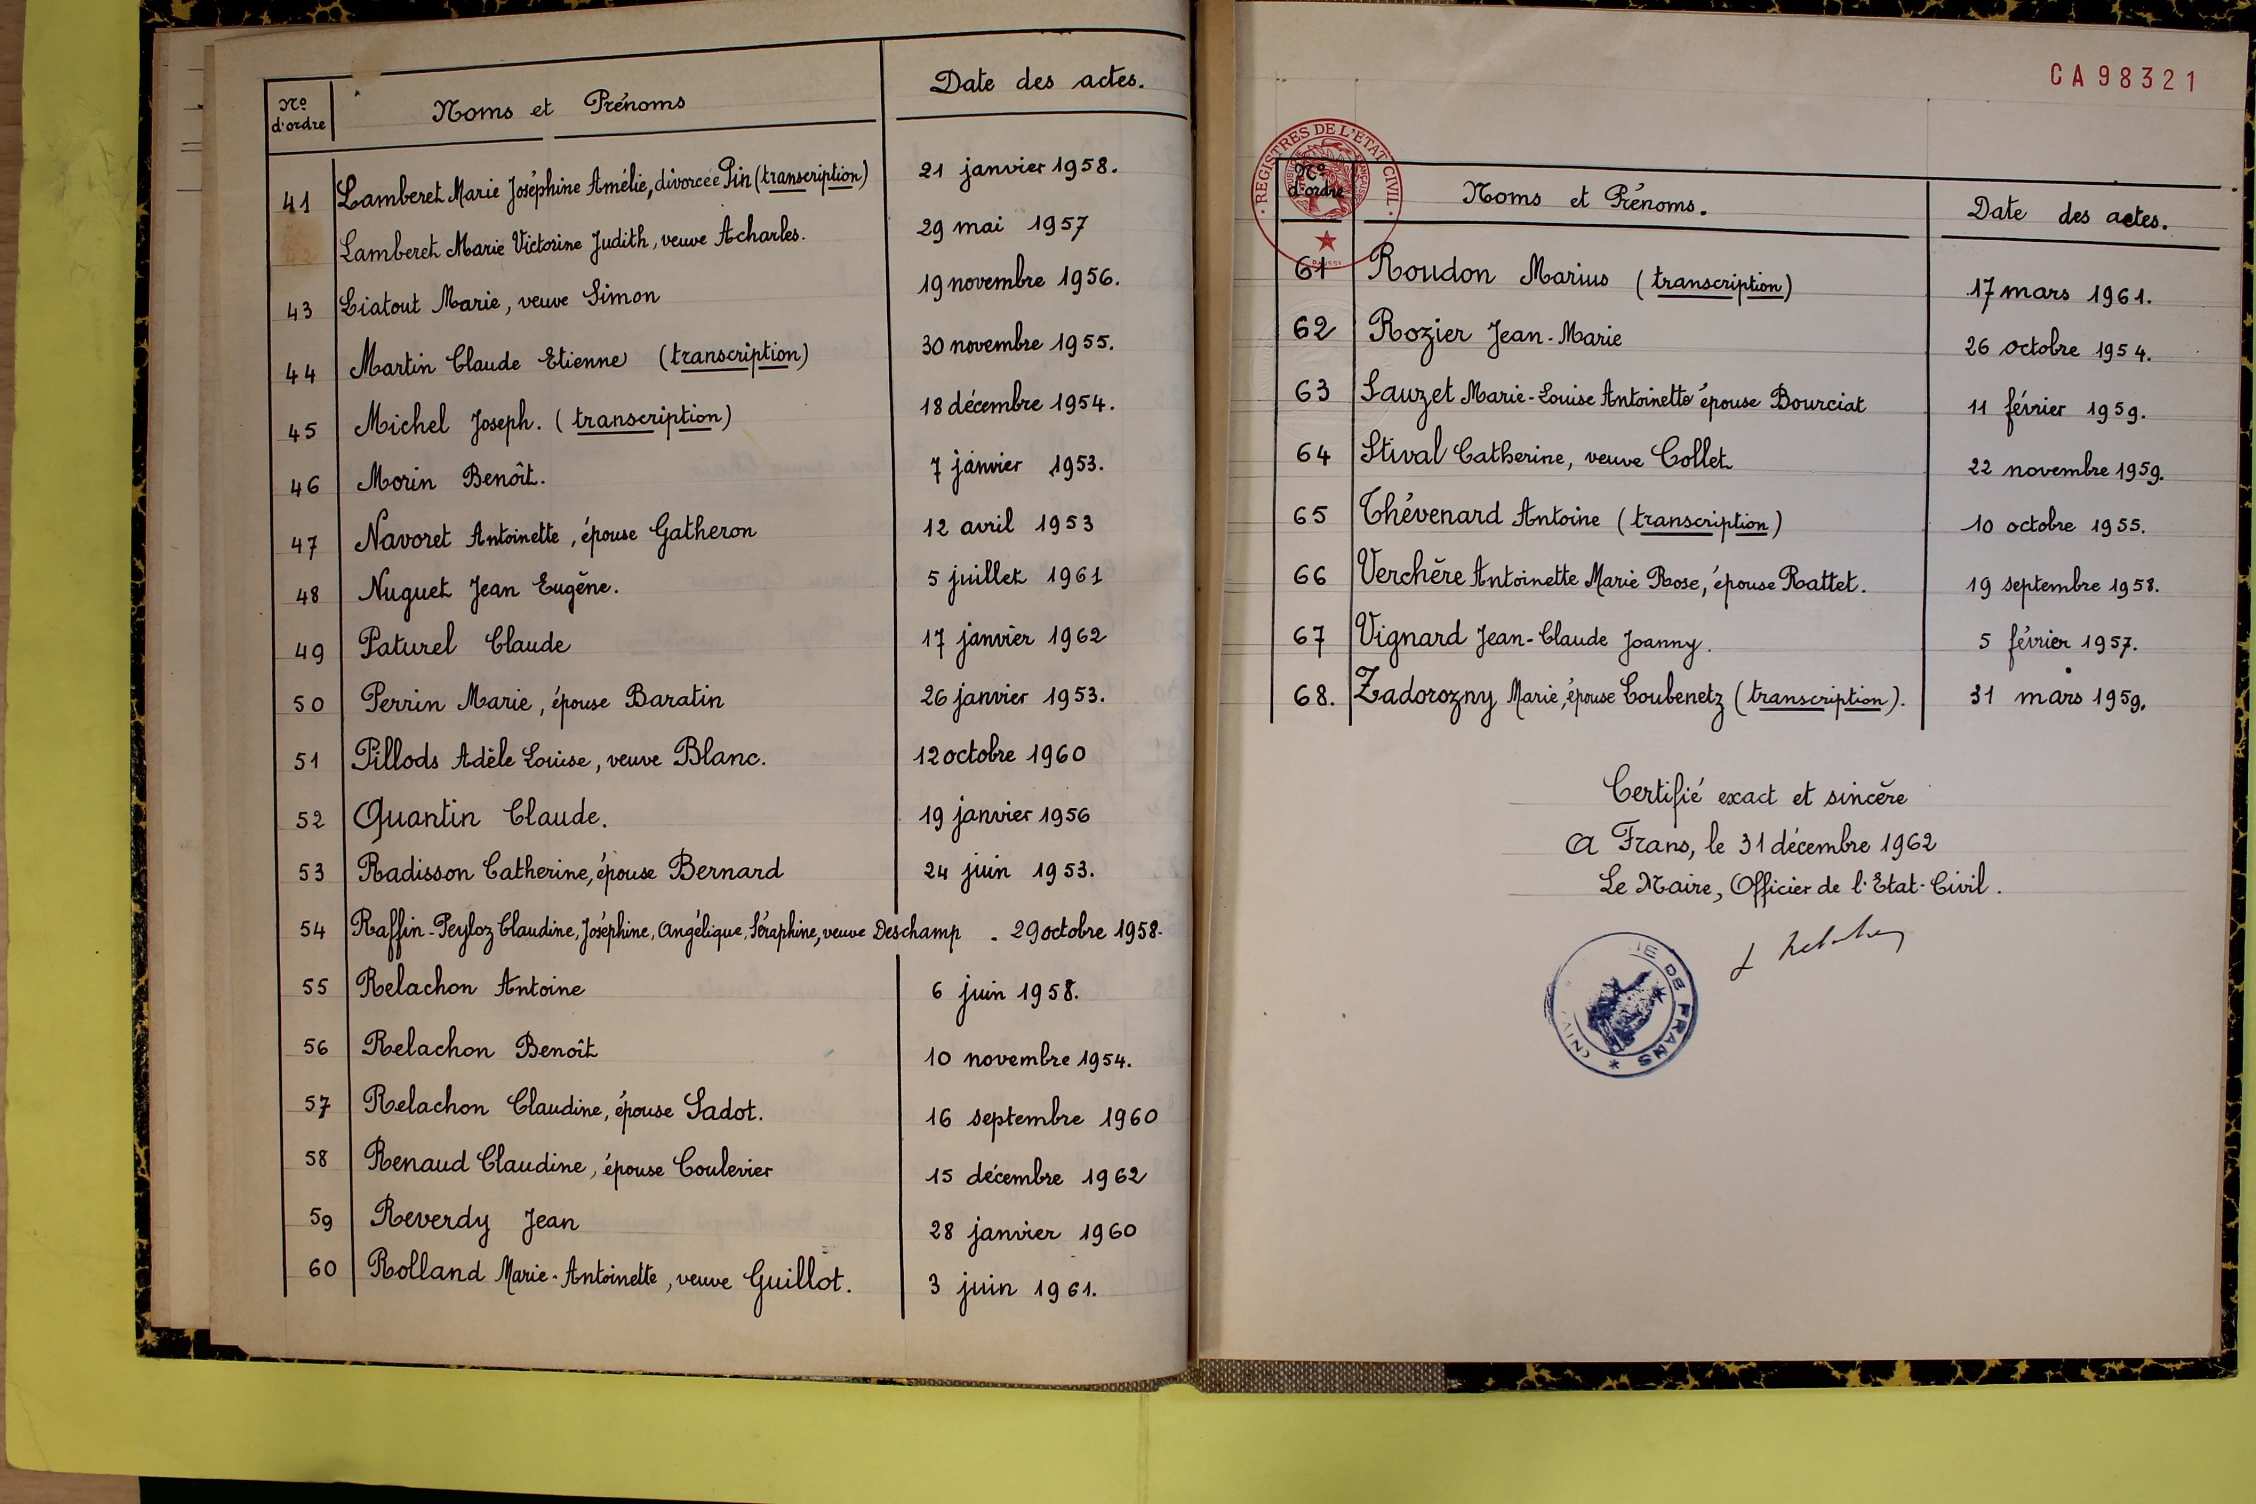 Nº d'ordre Noms et Prénoms Date des actes.
41 Lamberet Marie Joséphine Amélie, divorcée Pin (transcription) 21 janvier 1958.
Lamberet Marie Victorine Judith, veuve Acharles. 29 mai 1957
43 Liatout Marie, veuve Simon 19 novembre 1956.
44 Martin Claude Etienne (transcription) 30 novembre 1955.
45 Michel Joseph. (transcription) 18 décembre 1954.
46 Morin Benoît. 7 janvier 1953.
47 Navoret Antoinette, épouse Gatheron 12 avril 1953
48 Nuguet Jean Eugène. 5 juillet 1961
49 Paturel Claude 17 janvier 1962
50 Perrin Marie, épouse Baratin 26 janvier 1953.
51 Pillods Adèle Louise, veuve Blanc. 12 octobre 1960
52 Quantin Claude. 19 janvier 1956
53 Radisson Catherine, épouse Bernard 24 juin 1953.
54 Raffin-Peyloz Claudine, Joséphine, Angélique, Séraphine, veuve Deschamp . 29 octobre 1958.
55 Relachon Antoine 6 juin 1958.
56 Relachon Benoît 10 novembre 1954.
57 Relachon Claudine, épouse Sadot. 16 septembre 1960
58 Renaud Claudine, épouse Coulevier 15 décembre 1962
59 Reverdy Jean 28 janvier 1960
60 Rolland Marie-Antoinette, veuve Guillot. 3 juin 1961.
CA98321
REGISTRES DE L'ETAT CIVIL
Nº d'ordre Noms et Prénoms. Date des actes.
61 Roudon Marius (transcription) 17 mars 1961.
62 Rozier Jean-Marie 26 octobre 1954.
63 Sauzet Marie-Louise Antoinette épouse Bourciat 11 février 1959.
64 Stival Catherine, veuve Collet 22 novembre 1959.
65 Thévenard Antoine (transcription) 10 octobre 1955.
66 Verchère Antoinette Marie Rose, épouse Rattet. 19 septembre 1958.
67 Vignard Jean-Claude Joanny. 5 février 1957.
68. Zadorozny Marie, épouse Coubenetz (transcription). 31 mars 1959.
Certifié exact et sincère
A Frans, le 31 décembre 1962
Le Maire, Officier de l'Etat-Civil.
DE FRANS